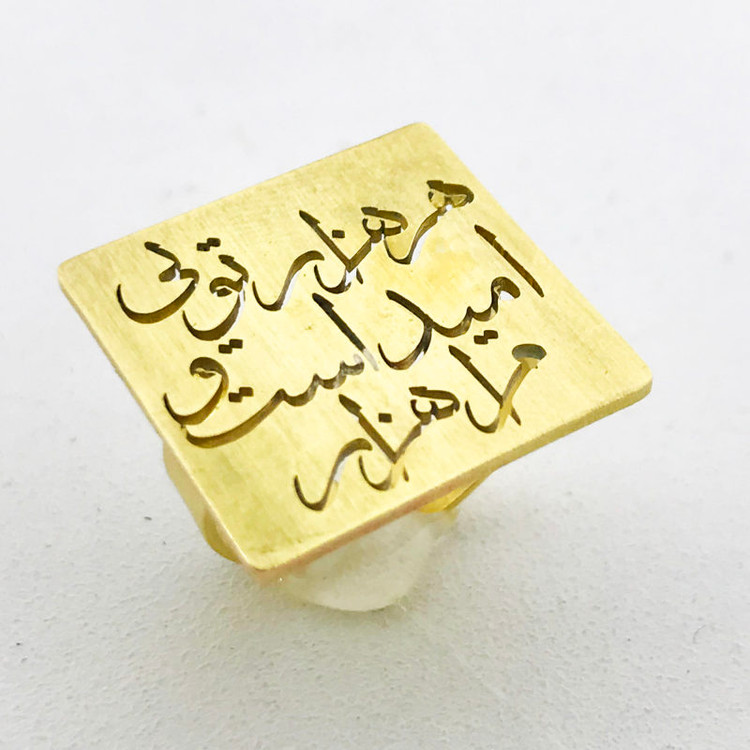 هر هزار تویی
امید است و
مرا هزار